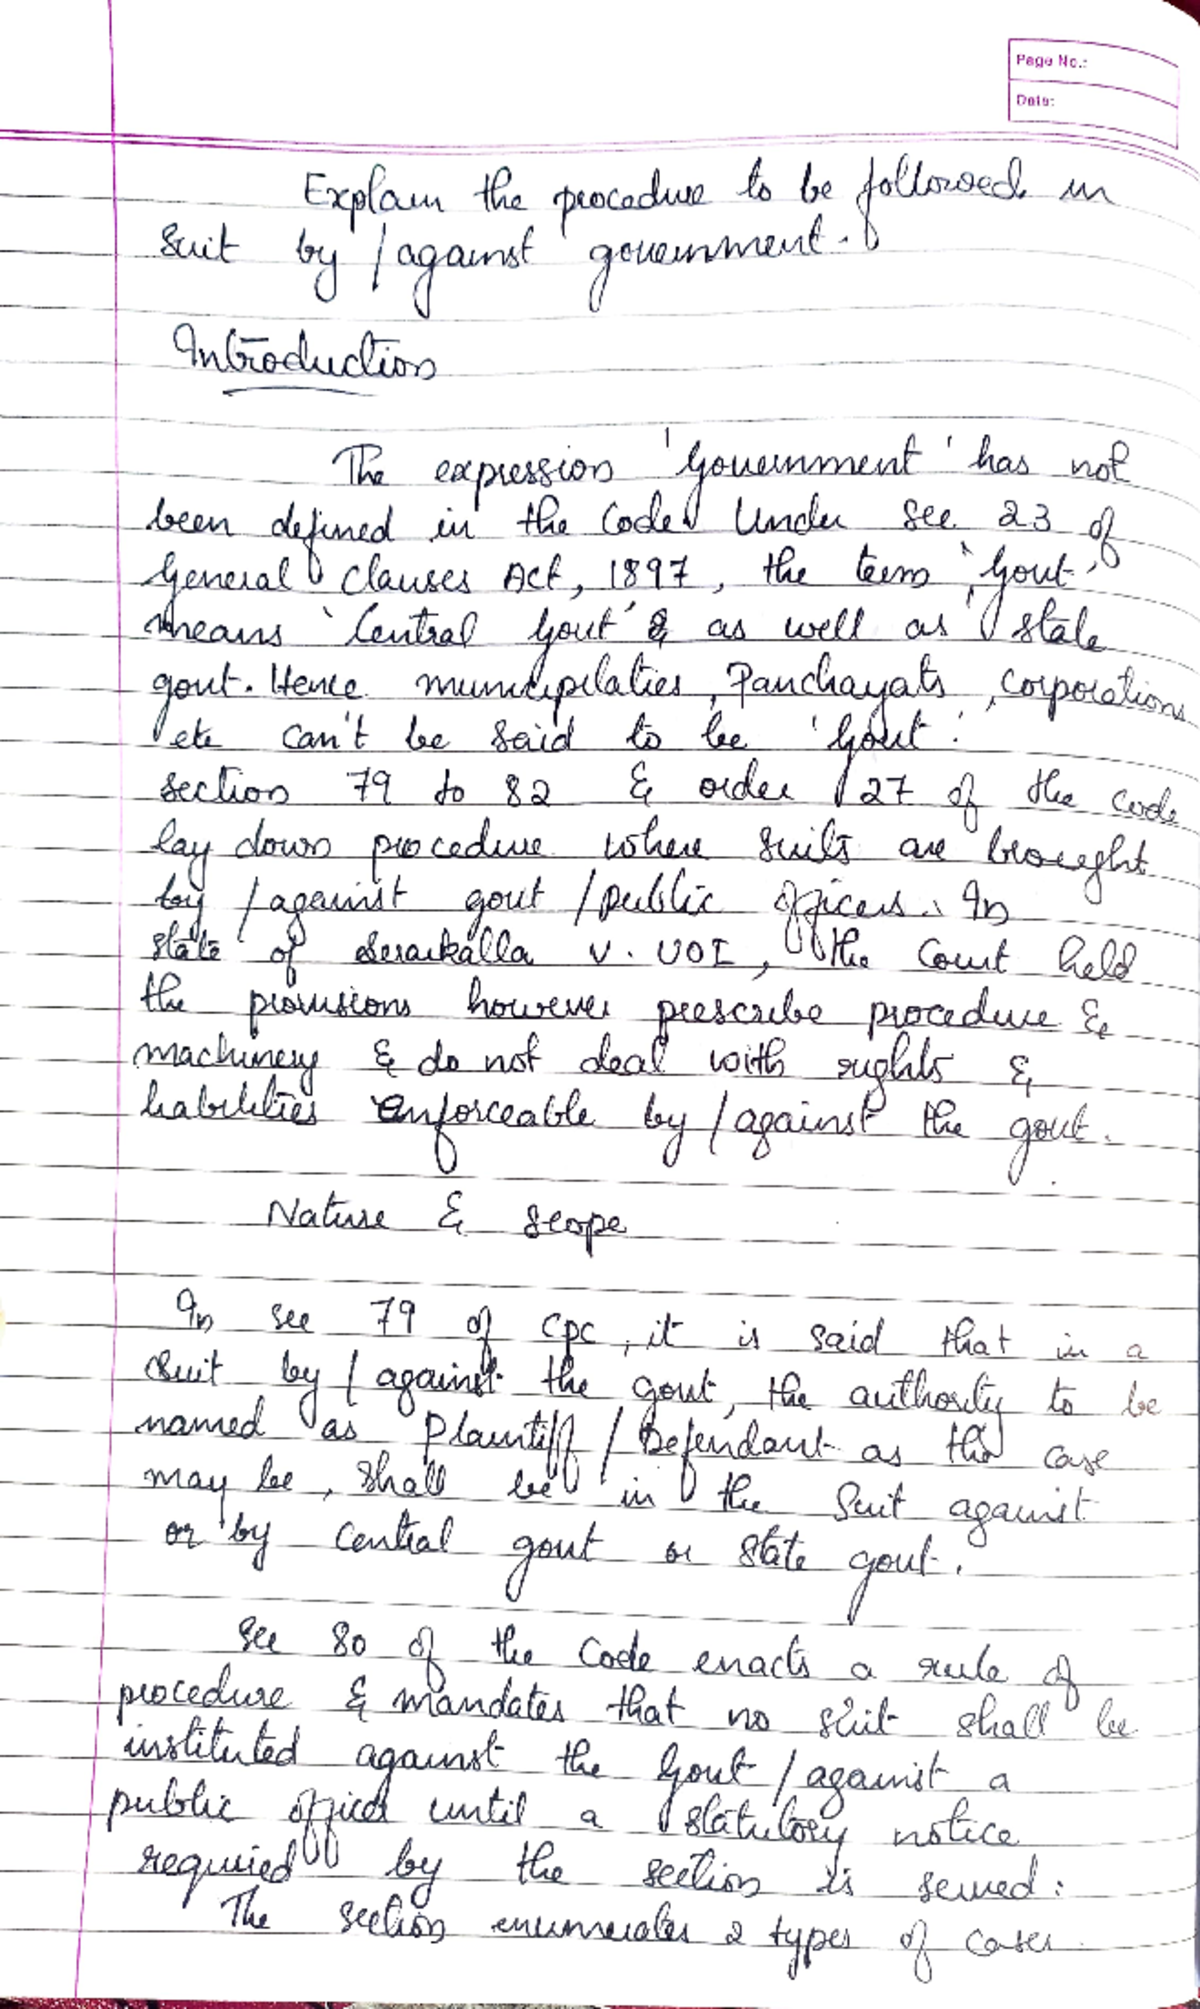 Page No.:
Date:
Explain the procedure to be followed in
suit by / against government.
Introduction
The expression 'Government' has not
been defined in the Code. Under sec 23 of
General Clauses Act, 1897, the term 'Govt'
means 'Central Govt' & as well as state
govt. Hence municipilaties, Panchayats, corporations
etc can't be said to be 'Govt'.
section 79 to 82 & order 27 of the code
lay down procedure where suits are brought
by / against govt / public officers. In
state of Seraikalla v. UOI, the Court held
the provisions however prescribe procedure &
machinery & do not deal with rights &
liabilities enforceable by / against the govt.
Nature & scope
In sec 79 of CPC, it is said that in a
suit by / against the govt, the authority to be
named as Plaintiff / Defendant as the case
may be, shall be in the suit against
or by central govt or state govt.
sec 80 of the Code enacts a rule of
procedure & mandates that no suit shall be
instituted against the Govt / against a
public officer until a statutory notice
required by the section is served:
The section enumerates 2 types of cases